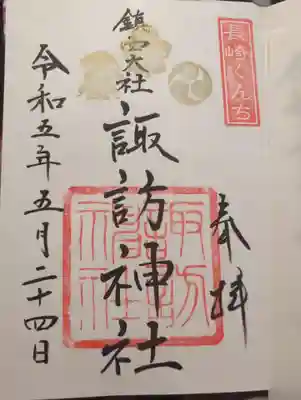 長崎くんち
奉拝
鎮西大社
諏訪神社
諏訪神社
令和五年五月二十四日